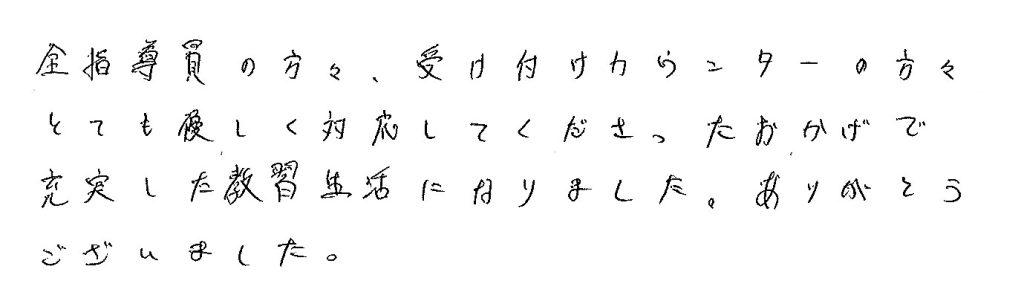 全指導員の方々、受け付けカウンターの方々
とても優しく対応してくださったおかげで
充実した教習生活になりました。ありがとう
ございました。